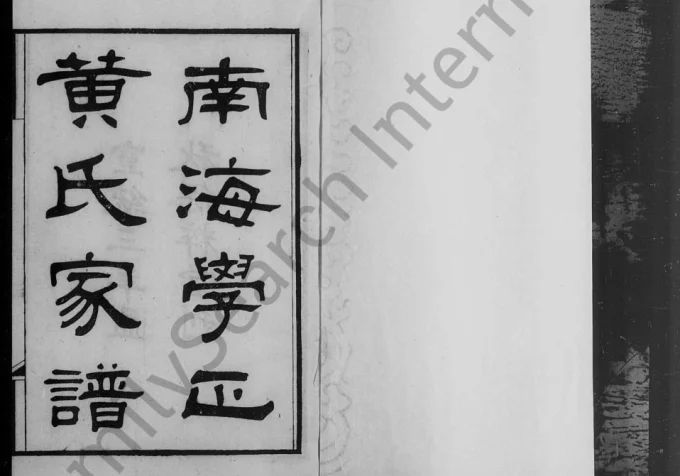 南海學正
黃氏家譜
milySearch Intern